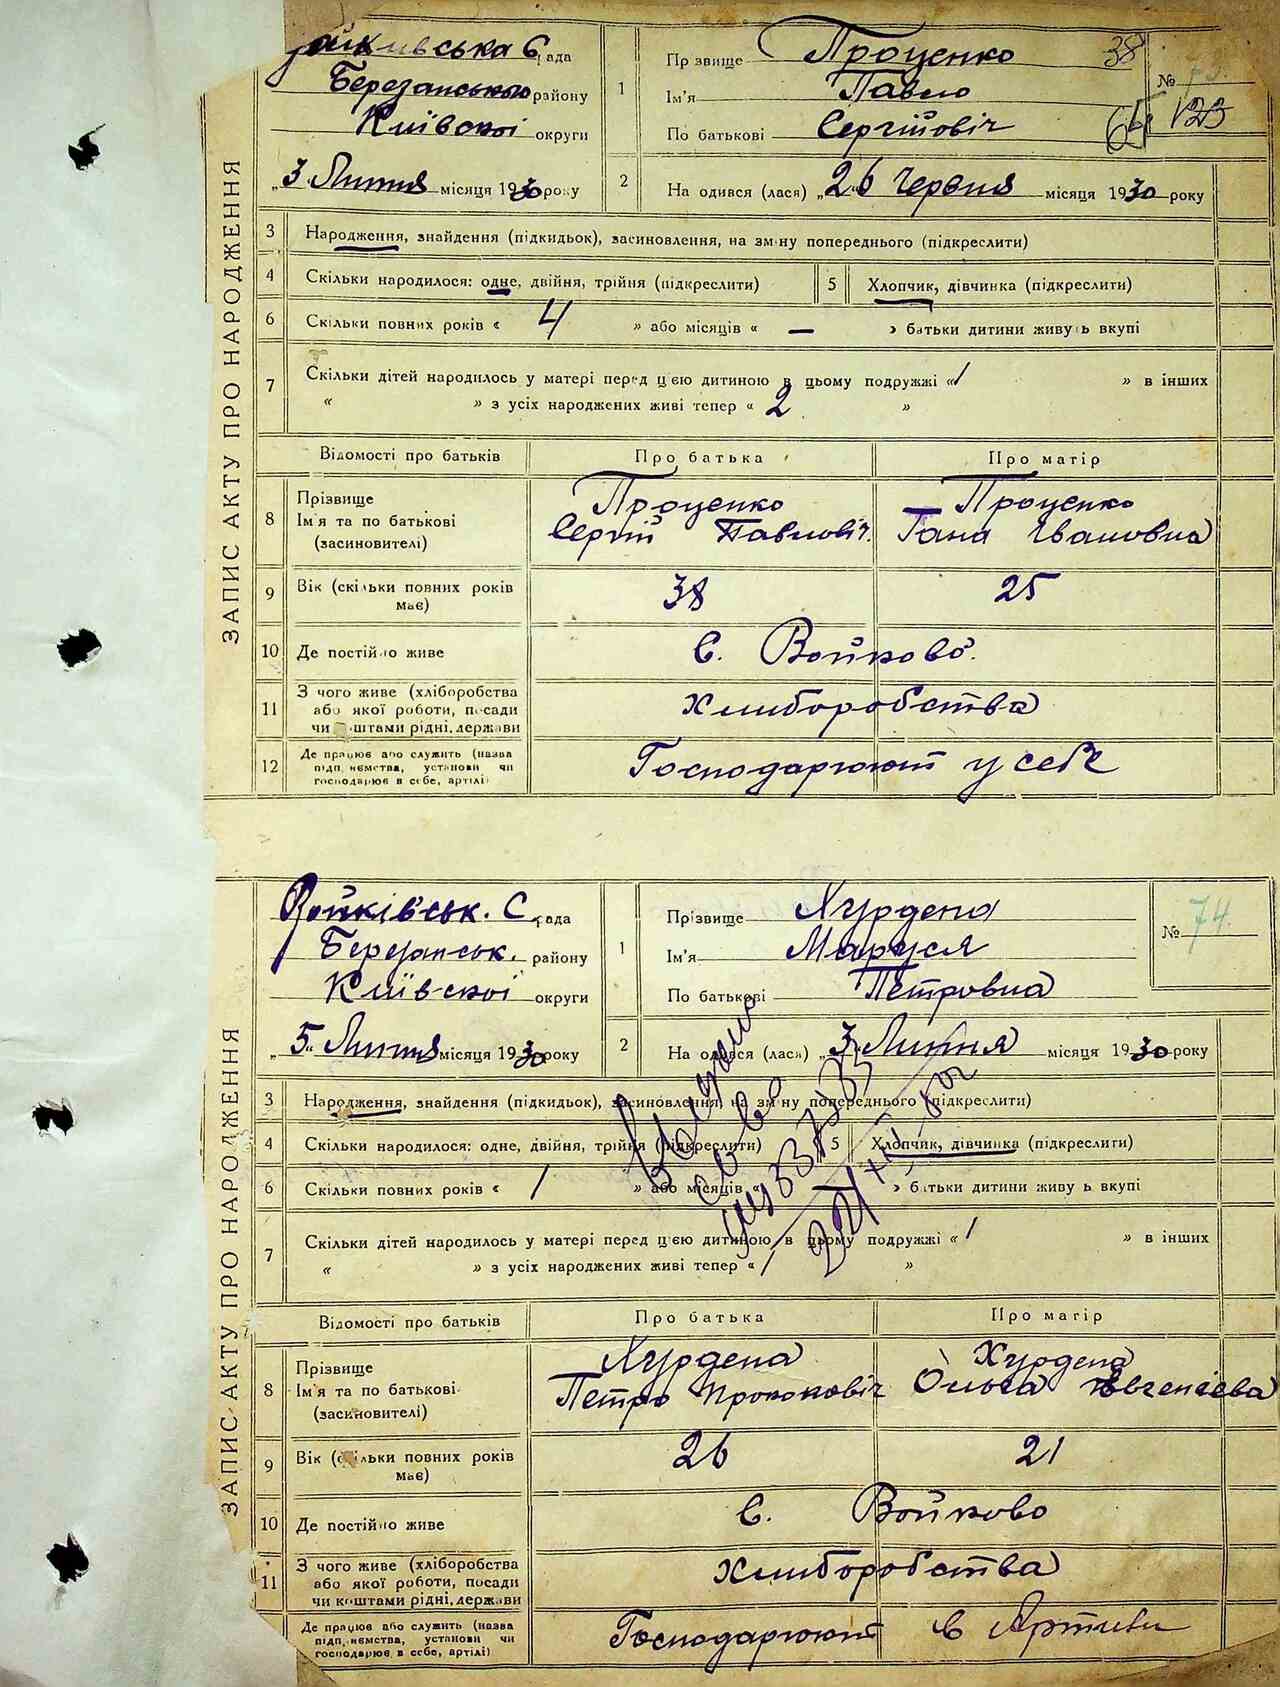 ЗАПИС АКТУ ПРО НАРОДЖЕННЯ
рада
Березанського району
Київскої округи
„3“ Липня місяця 1930 року
1
Прізвище Проценко 38
Ім'я Павло
По батькові Сергійовіч
№ 73.
123
2
На одився (лася) „26 Червня місяця 1930 року
3 Народження, знайдення (підкидьок), засиновлення, на зміну попереднього (підкреслити)
4 Скільки народилося: одне, двійня, трійня (підкреслити) 5 Хлопчик, дівчинка (підкреслити)
6 Скільки повних років « 4 » або місяців « — » батьки дитини живуть вкупі
7 Скільки дітей народилось у матері перед цією дитиною в цьому подружжі «1 » в інших
« » з усіх народжених живі тепер « 2 »
Відомості про батьків Про батька Про матір
8 Прізвище Проценко Проценко
Ім'я та по батькові Сергій Павловіч. Гана Івановна
(засиновителі)
9 Вік (скільки повних років має) 38 25
10 Де постійно живе С. Войково.
11 З чого живе (хліборобства або якої роботи, посади чи коштами рідні, держави Хлиборобства
12 Де працює або служить (назва підприємства, установи чи господарює в себе, артілі) Господарюют у себе
ЗАПИС АКТУ ПРО НАРОДЖЕННЯ
Войківськ. С. рада
Березанськ. району
Київскої округи
„5“ Липня місяця 1930 року
1
Прізвище Хурдепа
Ім'я Маруся
По батькові Петровна
№ 74.
2
На одився (лася) „3“ Липня місяця 1930 року
3 Народження, знайдення (підкидьок), засиновлення, на зміну попереднього (підкреслити)
4 Скільки народилося: одне, двійня, трійня (підкреслити) 5 Хлопчик, дівчинка (підкреслити)
6 Скільки повних років « 1 » або місяців « » батьки дитини живуть вкупі
7 Скільки дітей народилось у матері перед цією дитиною в цьому подружжі « 1 » в інших
« » з усіх народжених живі тепер « 1 »
Выдано
св во
Відомості про батьків Про батька Про матір
8 Прізвище Хурдепа Хурдепа
Ім'я та по батькові Петро Прокоповіч Ольга Евгенієва
(засиновителі)
9 Вік (скільки повних років має) 26 21
10 Де постійно живе С. Войково
11 З чого живе (хліборобства або якої роботи, посади чи коштами рідні, держави Хлиборобства
Де працює або служить (назва підприємства, установи чи господарює в себе, артілі) Господарюют в Артили